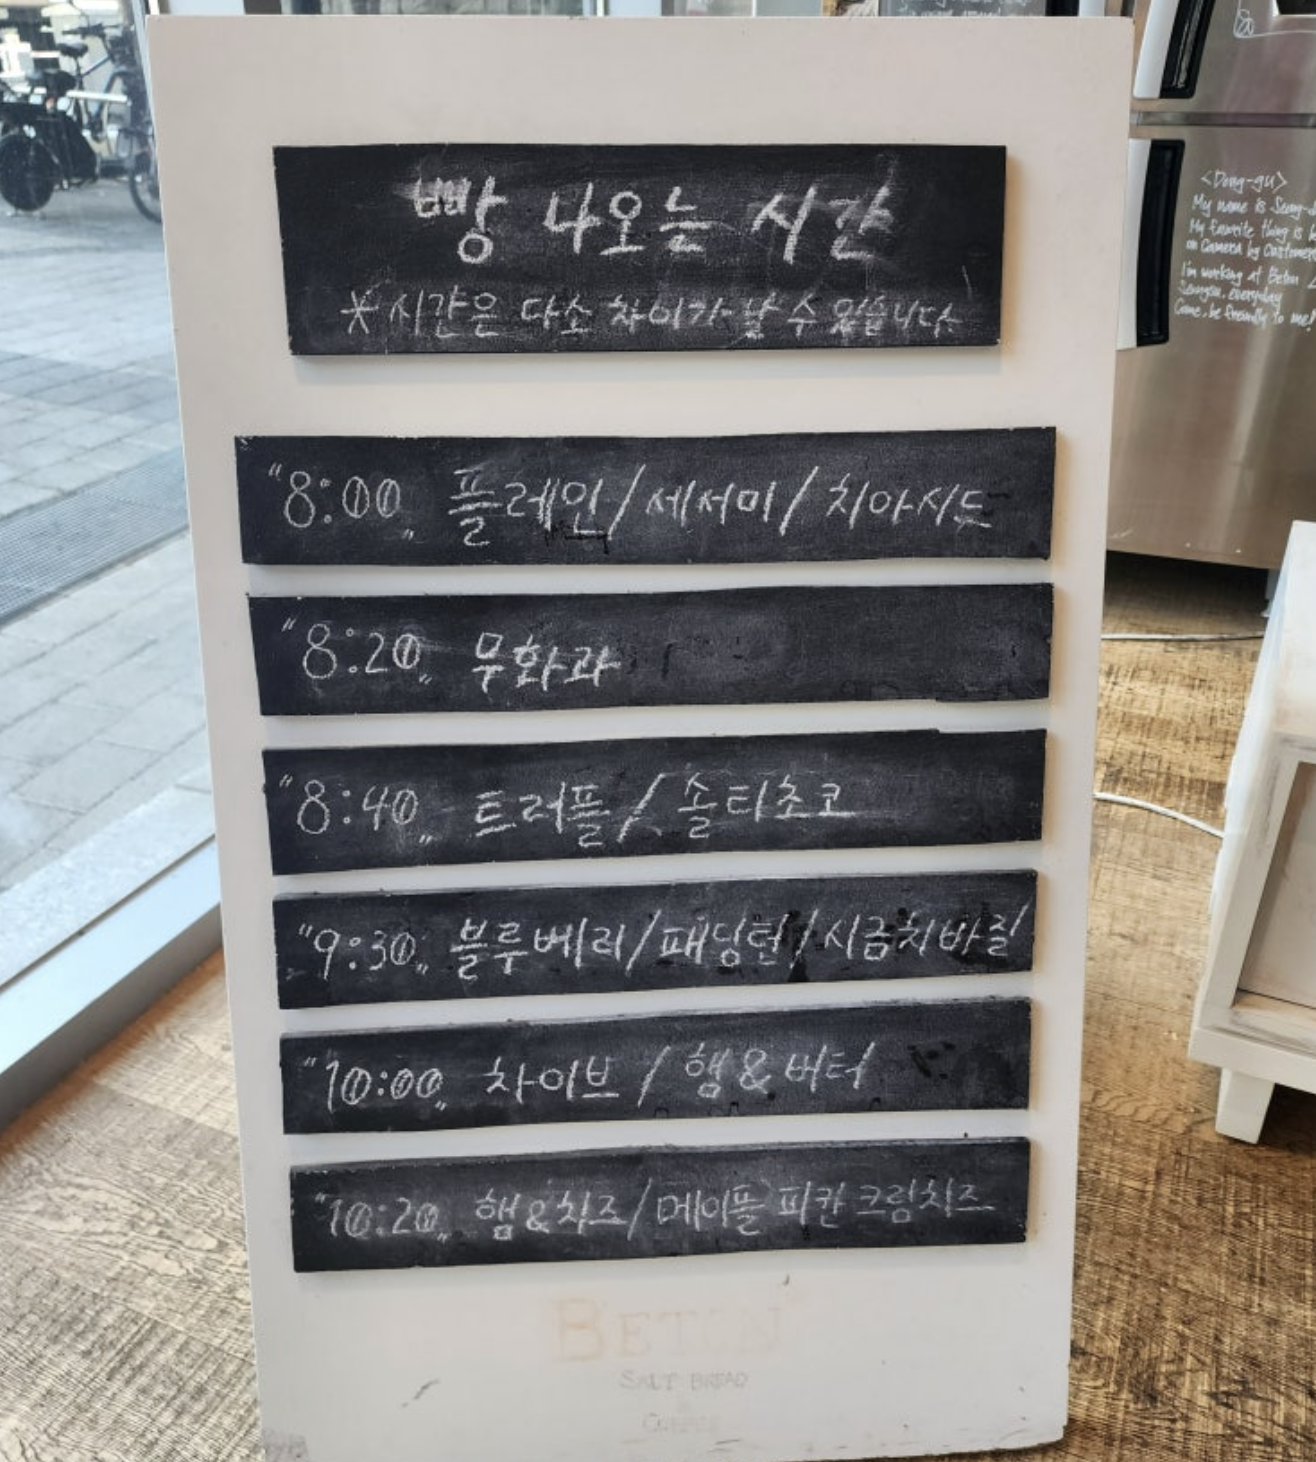 빵 나오는 시간
* 시간은 다소 차이가 날 수 있습니다.
"8:00„ 플레인/세서미/치아시드
"8:20„ 무화과
"8:40„ 트러플/솔티초코
"9:30„ 블루베리/패딩턴/시금치바질
"10:00„ 차이브/햄&버터
"10:20„ 햄&치즈/메이플 피칸 크림치즈
BETON
SALT BREAD
&
COFFEE
<Dong-gu>
My name is Seong-
My favorite thing is
on Camera by Customers
I'm working at Beton
Seongsu. everyday
Come. be friendly to me!